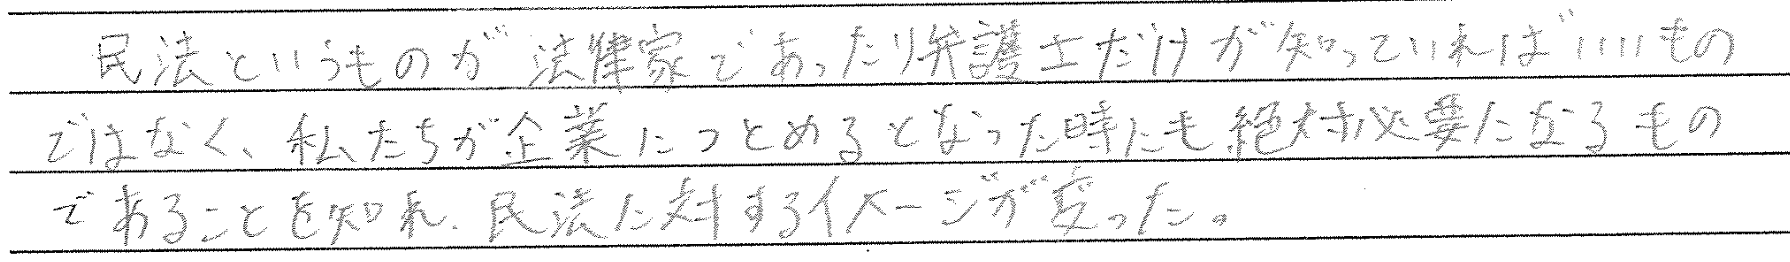 民法というものが法律家であったり弁護士だけが知っていればいいもの
ではなく、私たちが企業につとめるとなった時にも絶対必要になるもの
であることを知れ、民法に対するイメージが変った。